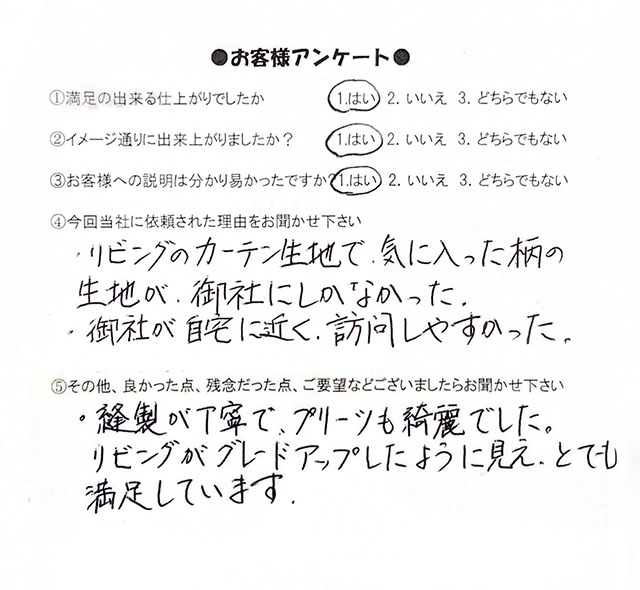 ●お客様アンケート●
①満足の出来る仕上がりでしたか 1.はい 2. いいえ 3. どちらでもない
②イメージ通りに出来上がりましたか？ 1.はい 2. いいえ 3. どちらでもない
③お客様への説明は分かり易かったですか? 1.はい 2. いいえ 3. どちらでもない
④今回当社に依頼された理由をお聞かせ下さい
・リビングのカーテン生地で、気に入った柄の
生地が、御社にしかなかった。
・御社が自宅に近く、訪問しやすかった。
⑤その他、良かった点、残念だった点、ご要望などございましたらお聞かせ下さい
・縫製が丁寧で、プリーツも綺麗でした。
リビングがグレードアップしたように見え、とても
満足しています。